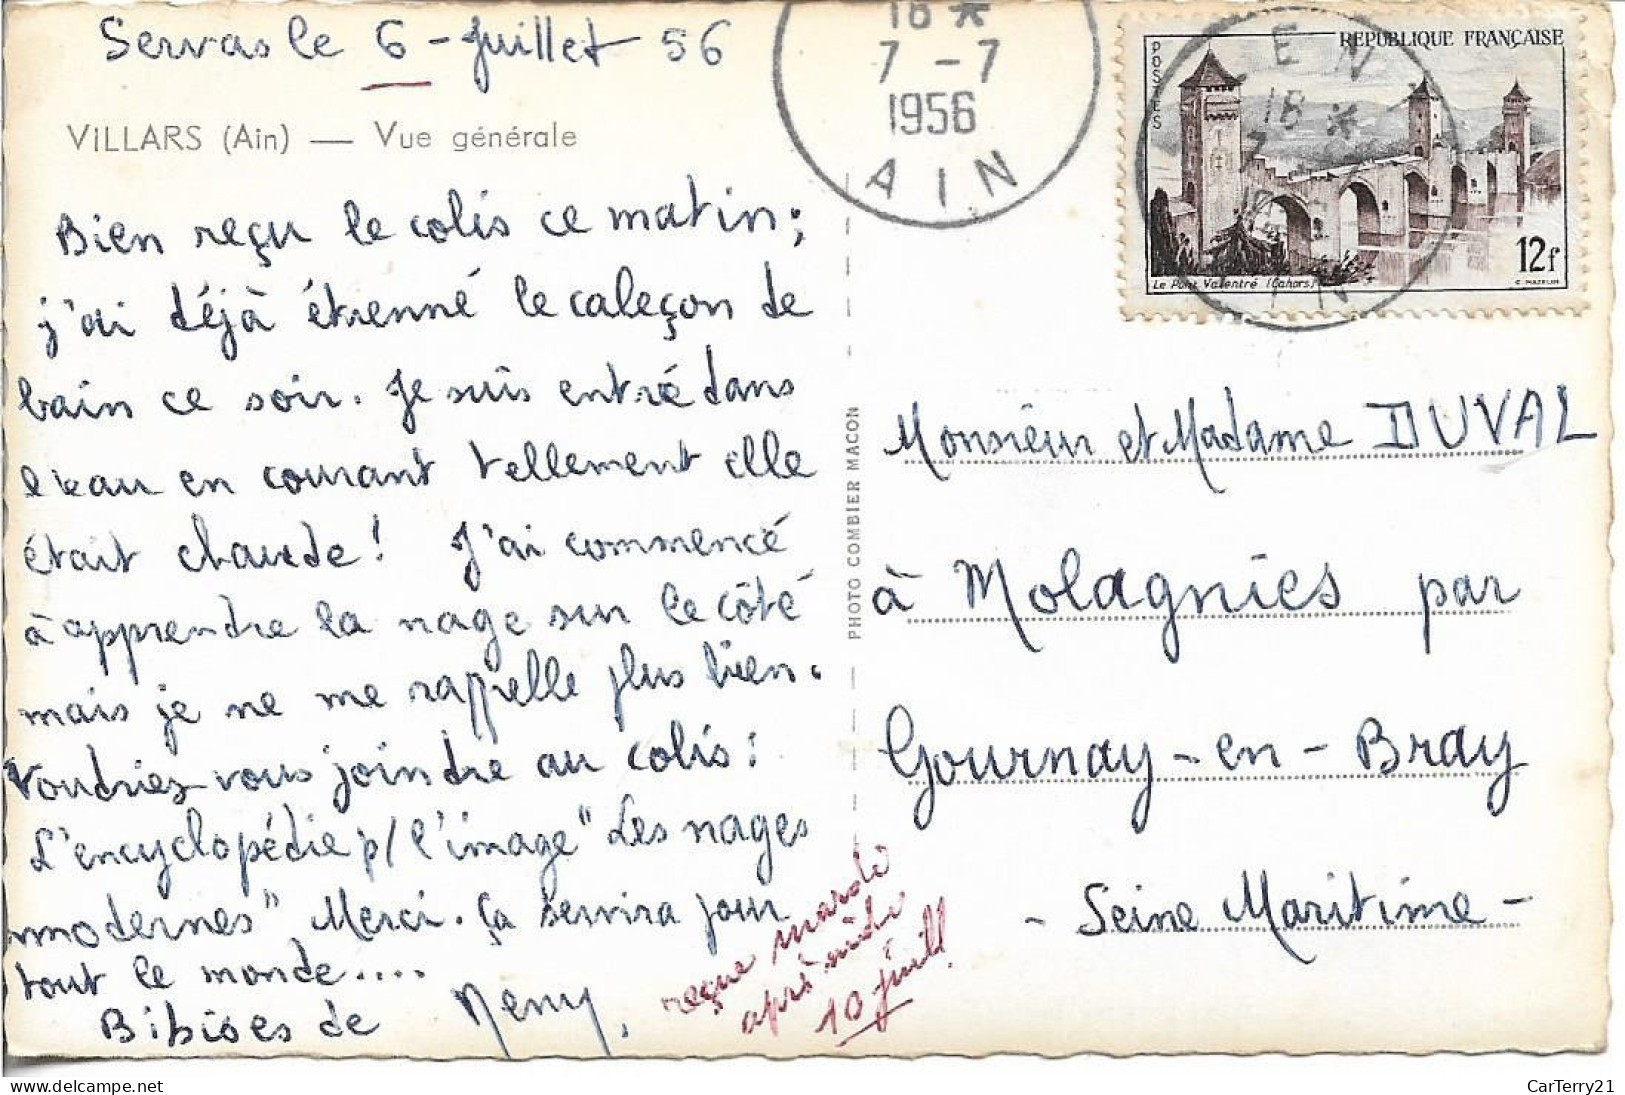 Servas le 6 - Juillet 56
VILLARS (Ain) — Vue générale
Bien reçu le colis ce matin;
j'ai déjà étrenné le caleçon de
bain ce soir. Je suis entré dans
l'eau en courant tellement elle
était chaude! J'ai commencé
à apprendre la nage sur le côté
mais je ne me rappelle plus bien.
Voudriez-vous joindre au colis:
L'encyclopédie p/ l'image "Les nages
modernes" Merci. Ça servira pour
tout le monde....
Bibises de
reçue mardi
après midi
10 juill.
PHOTO COMBIER MACON
18 *
7 - 7
1956
AIN
REPUBLIQUE FRANÇAISE
POSTES
12f
Le Pont Valentré (Cahors)
C. MAZELIN
18 *
Monsieur et Madame DUVAL
à Molagnies par
Gournay-en-Bray
- Seine Maritime -
CarTerry21